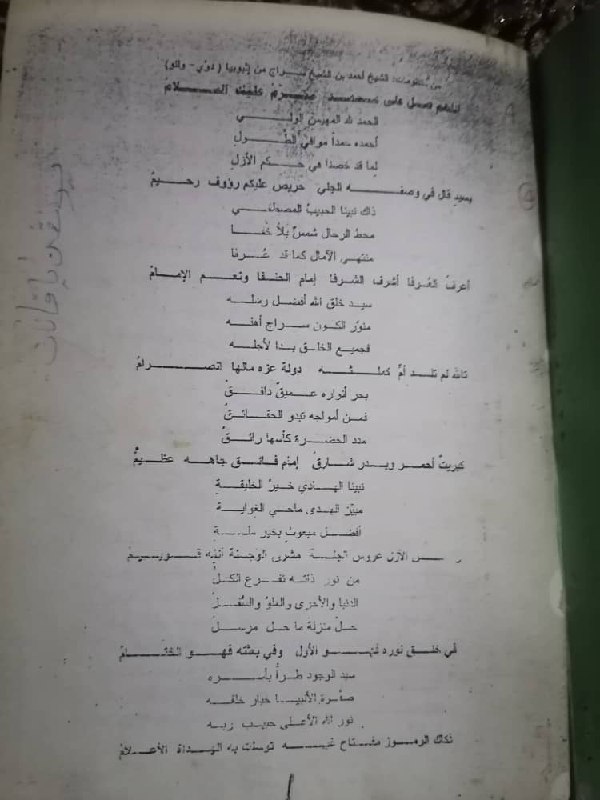 من منظومات: الشيخ أحمد بن الشيخ سراج من إثيوبيا (دوّي - والو)
اللهم صل على محمد عليه السلام
الحمد لله المهيمن الولي
أحمده حمداً موافي الطول
لما قد خصنا في حكم الأزل
بسيدٍ قال في وصفه الجلي حريص عليكم رؤوف رحيم
ذاك نبينا الحبيب المصطفى
محط الرحال شمس بلا خفا
منتهى الآمال كما قد عرفنا
أعرف العرفا أشرف الشرفا إمام الحنفا ونعم الإمام
سيد خلق الله أفضل رسله
منور الكون سراج أهله
فجميع الخلق بدا لأجله
تالله لم تلد أمٌ كمثله دولة عزه مالها انصرام
بحر أنواره عميقٌ دافقٌ
فمن أمواجه تبدو الحقائقُ
مدد الحضرة كأسها رائقٌ
كبريتٌ أحمر وبدر شارقٌ إمام فائق جاهه عظيمٌ
نبينا الهادي خير الخليقة
مبيّن الهدى ماحي الغواية
أفضل مبعوث بخير
الأزل عروس الجنة
من نور ذاته تفرع الكلُ
الدنيا والأخرى والعلو والسفلُ
حلّ منزلة ما حل مرسل
في خلق نوره فهو الأول وفي بعثه فهو الختام
سيد الوجود طراً بأسره
صفوة الأنبيا خيار خلقه
نور الله الأعلى حبيب ربه
الرموز مفتاح توسلت به الهداة الأعلام